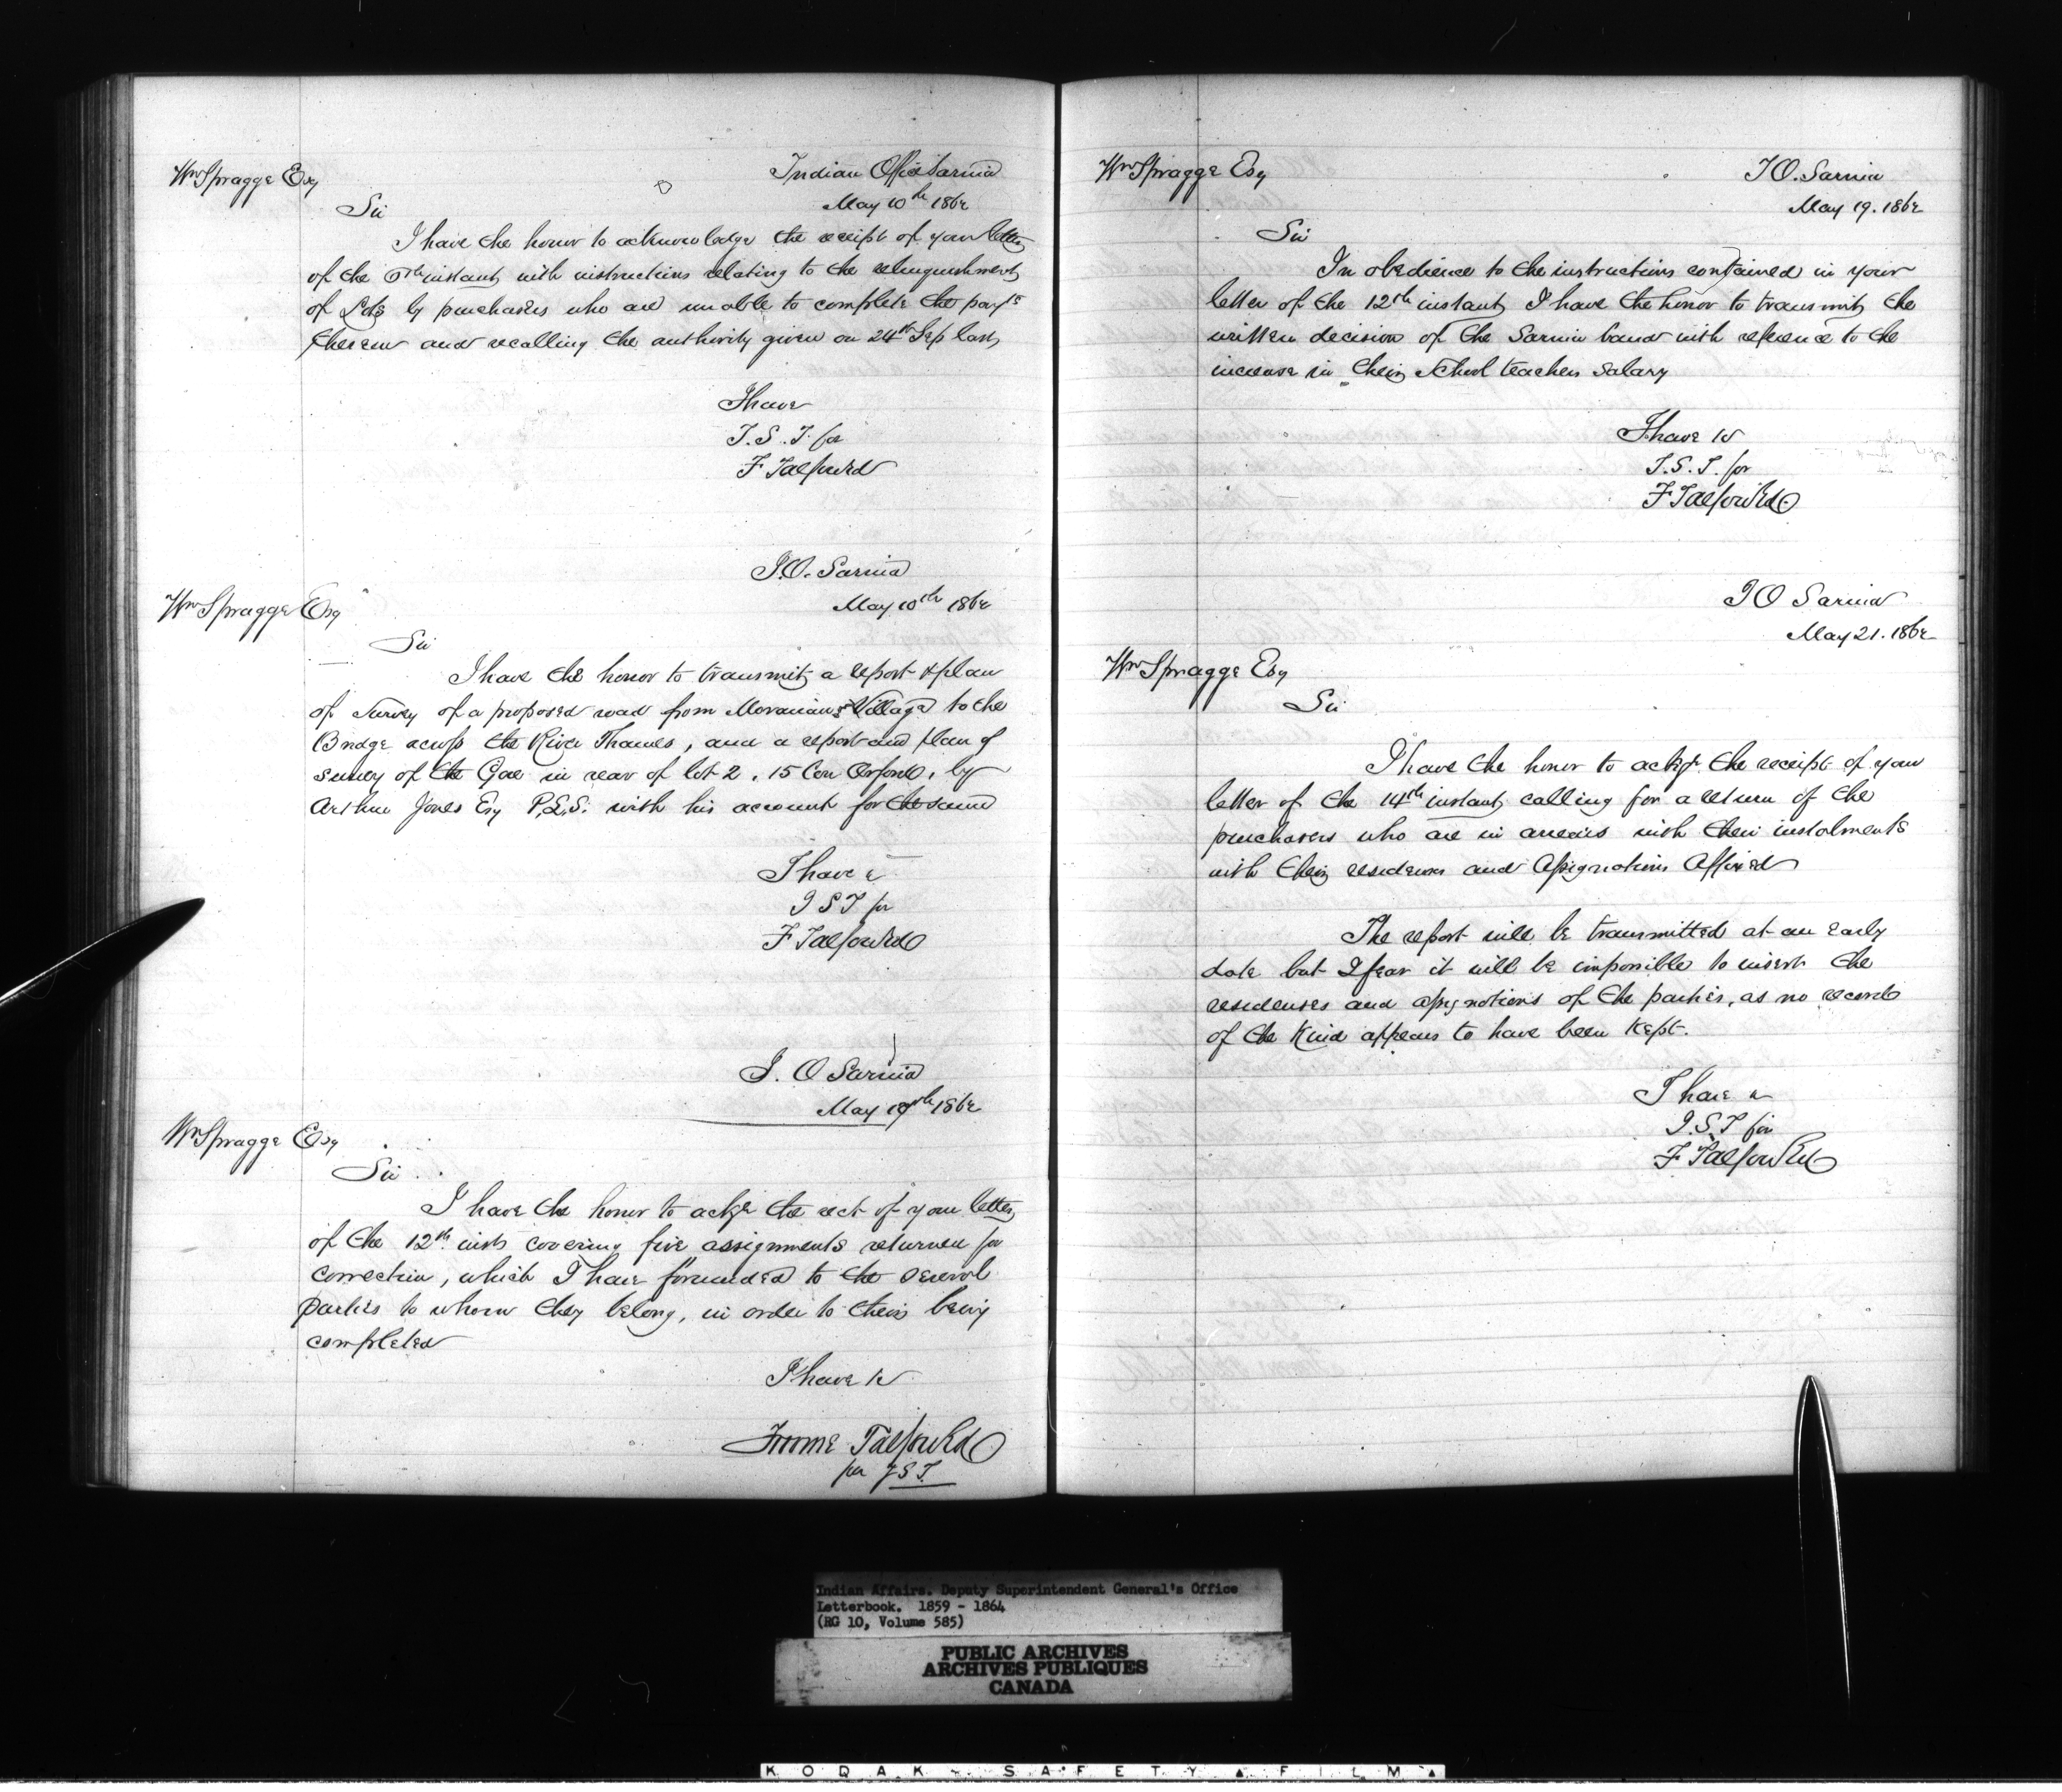 Wm Spragge Esq
Indian Office Sarnia
May 10th 1862
Sir
I have the honor to acknowledge the receipt of your letter
of the instant with instructions relating to the relinquishment
of Lots by purchasers who are unable to complete the paymts
thereon and recalling the authority given on 24th Sep last
I have
J. S. T. for
F Talfourd
I.O. Sarnia
May 10th 1862
Wm Spragge Esq
Sir
I have the honor to transmit a report & plan
of Survey of a proposed road from Moravian Village to the
Bridge across the River Thames, and a report and plan of
survey of the Gore in rear of lot 2, 15 Con Orford, by
Arthur Jones Esq P.L.S. with his account for the same
I have &
J S T for
F Talfourd
I. O Sarnia
May 19th 1862
Wm Spragge Esq
Sir
I have the honor to ackge the rect of your letter
of the 12th inst covering five assignments returned for
correction, which I have forwarded to the several
parties to whom they belong, in order to their being
completed
I have &c
Froome Talfourd
per J S T
Wm Spragge Esq
I O. Sarnia
May 19. 1862
Sir
In obedience to the instructions contained in your
letter of the 12th instant I have the honor to transmit the
written decision of the Sarnia band with reference to the
increase in their School teachers salary
I have &c
J. S. T. for
F Talfourd
I O Sarnia
May 21. 1862
Wm Spragge Esq
Sir
I have the honor to ackge the receipt of your
letter of the 14th instant calling for a return of the
purchasers who are in arrears with their instalments
with their residences and assignations affixed
The report will be transmitted at an early
date but I fear it will be impossible to insert the
residenses and assignations of the parties, as no record
of the Kind appears to have been kept.
I have &
J. S. T for
F Talfourd
Indian Affairs. Deputy Superintendent General's Office
Letterbook. 1859 - 1864
(RG 10, Volume 585)
PUBLIC ARCHIVES
ARCHIVES PUBLIQUES
CANADA
KODAK SAFETY FILM